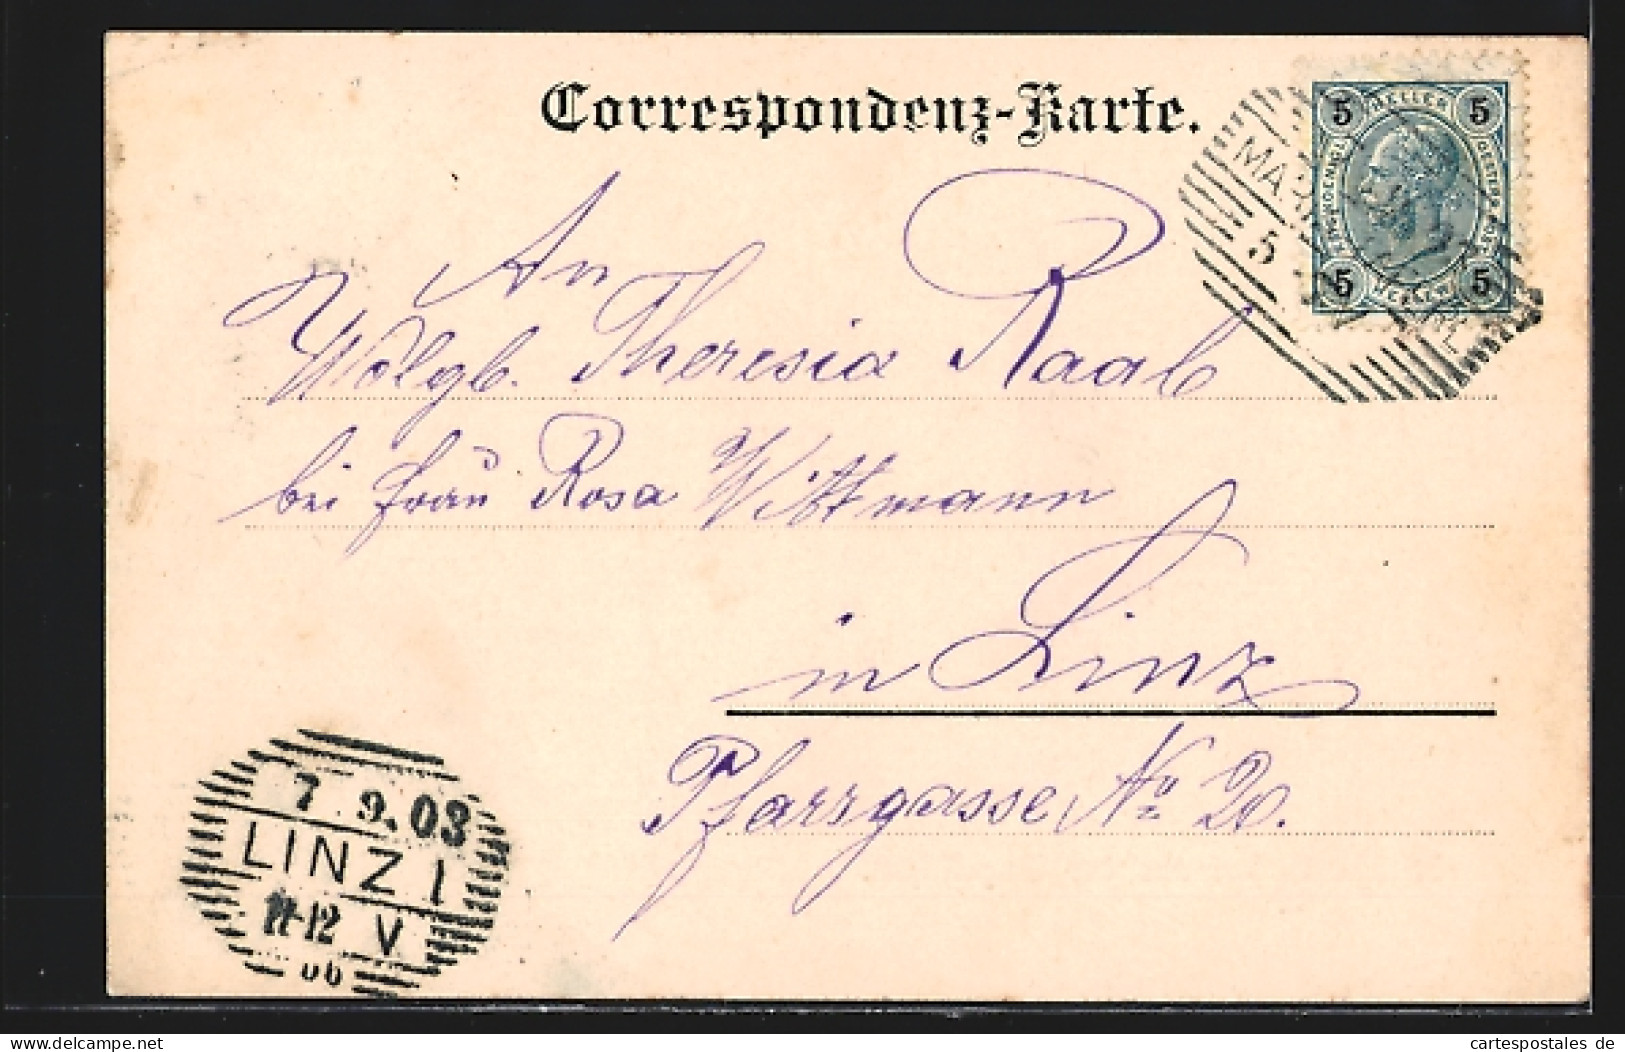 Correspondenz-Karte.
5 HELLER 5
5 5
MA
5
An
Wölgb. Theresia Raab
bei Frau Rosa Wittmann
in Linz
Pfarrgasse No 20.
7 9.03
LINZ 1
11-12 V
delcampe.net
cartespostales de